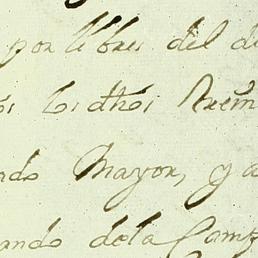 por libres del d
os los dhõs Rem
ado Mayor, y a
ando dela Comp